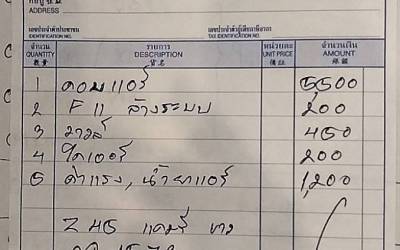 ADDRESS
เลขประจำตัวประชาชน เลขประจำตัวผู้เสียภาษีอากร
IDENTIFICATION NO. TAX IDENTIFICATION NO.
จำนวน รายการ หน่วยละ จำนวนเงิน
QUANTITY DESCRIPTION UNIT PRICE AMOUNT
數量 貨名 價註 銀額
1 คอมแอร์ 5,500
2 F11 ล้างระบบ 200
3 วาวล์ 450
4 ไดเออร์ 200
5 ค่าแรง, น้ำยาแอร์ 1,200